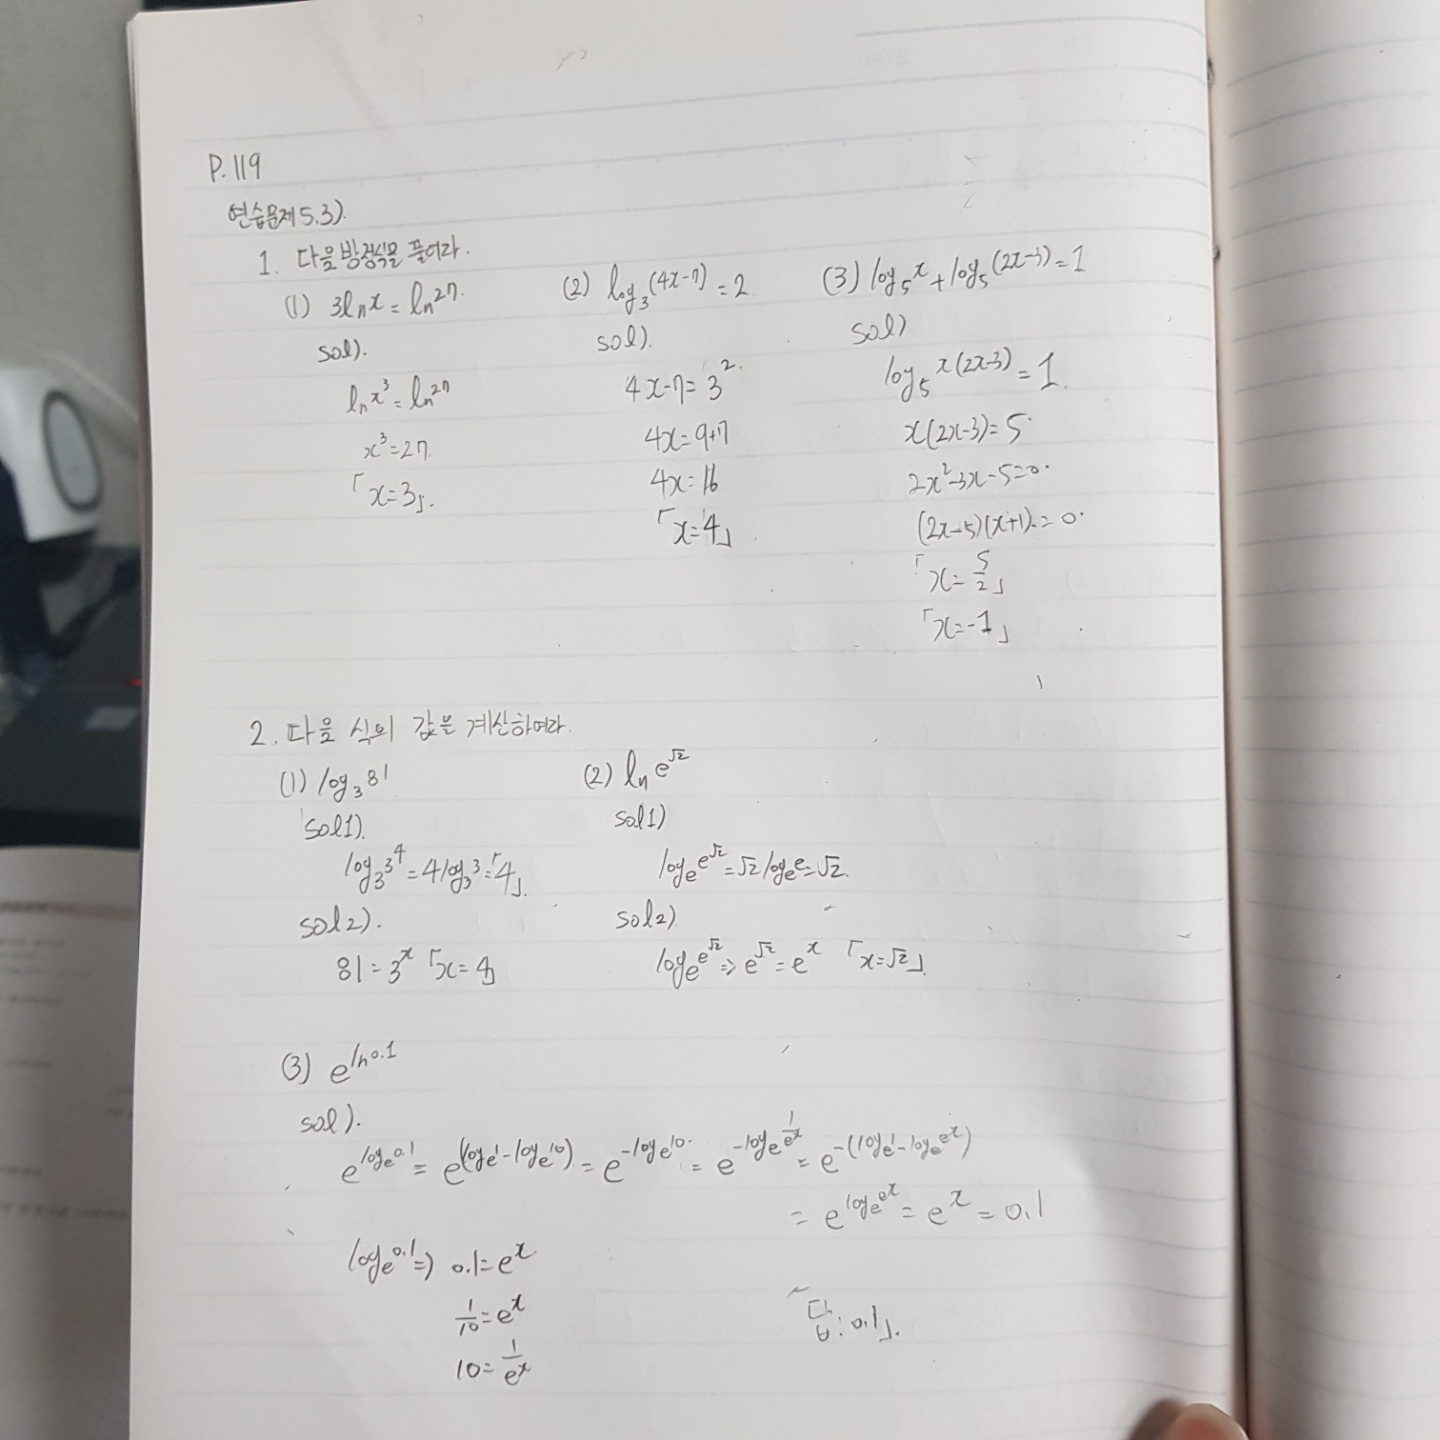 DATE
P.119
연습문제 5.3).
1. 다음방정식을 풀어라.
(1) 3ln x = ln 27.
sol).
ln x³ = ln 27
x³ = 27
「x=3」.
(2) log₃(4x-7) = 2.
sol).
4x-7 = 3².
4x = 9+7
4x = 16
「x=4」
(3) log₅x + log₅(2x-3) = 1
sol)
log₅x(2x-3) = 1.
x(2x-3) = 5.
2x²-3x-5=0.
(2x-5)(x+1) = 0.
「x = 5/2」
「x=-1」
2. 다음 식의 값을 계산하여라.
(1) log₃81
sol1).
log₃3⁴ = 4log₃3 = 「4」.
sol2).
81 = 3ˣ 「x = 4」
(2) ln e^√2
sol1)
logₑe^√2 = √2 logₑe = √2.
sol2)
logₑe^√2 ⇒ e^√2 = eˣ 「x=√2」.
(3) e^ln0.1
sol).
e^logₑ0.1 = e^(logₑ1 - logₑ10) = e^-logₑ10 = e^-logₑ(1/eˣ) = e^-(logₑ1 - logₑeˣ)
= e^logₑeˣ = eˣ = 0.1
logₑ0.1 ⇒ 0.1 = eˣ
1/10 = eˣ
10 = 1/eˣ
「답: 0.1」.